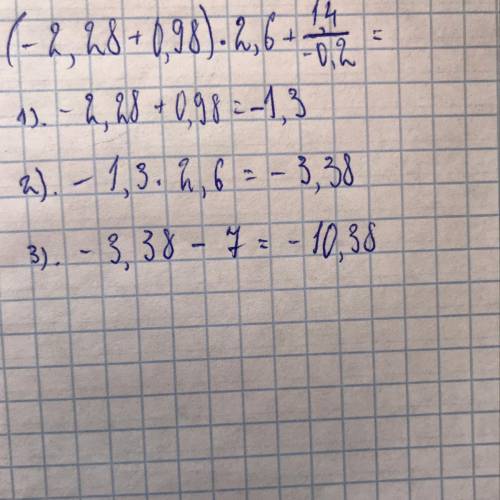 (-2,28+0,98)·2,6+1,4/-0,2=
1). -2,28+0,98=-1,3
2). -1,3·2,6=-3,38
3). -3,38-7=-10,38